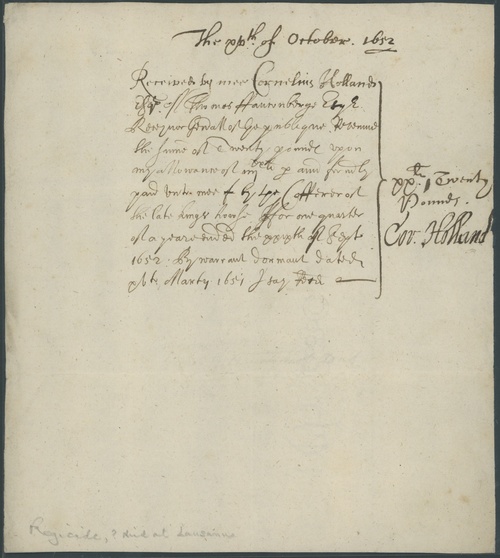 The xxth of October. 1652
Received by mee Cornelius Holland
Esqr. of Thomas Fauconberge Esqr
Receyvor Gen'all of the publique Revenue
the summe of Twenty pounds upon
my allowance of iiijxxli p ann formerly
paid unto mee by the Cofferer of
the late kings house ffor one quarter
of a yeare ended the xxixth of Sept
1652. By warrant dormant dated
Martij 1651 I say
xxli Twenty
Pounds.
Cor: Holland
Regicide, ? died at Lausanne